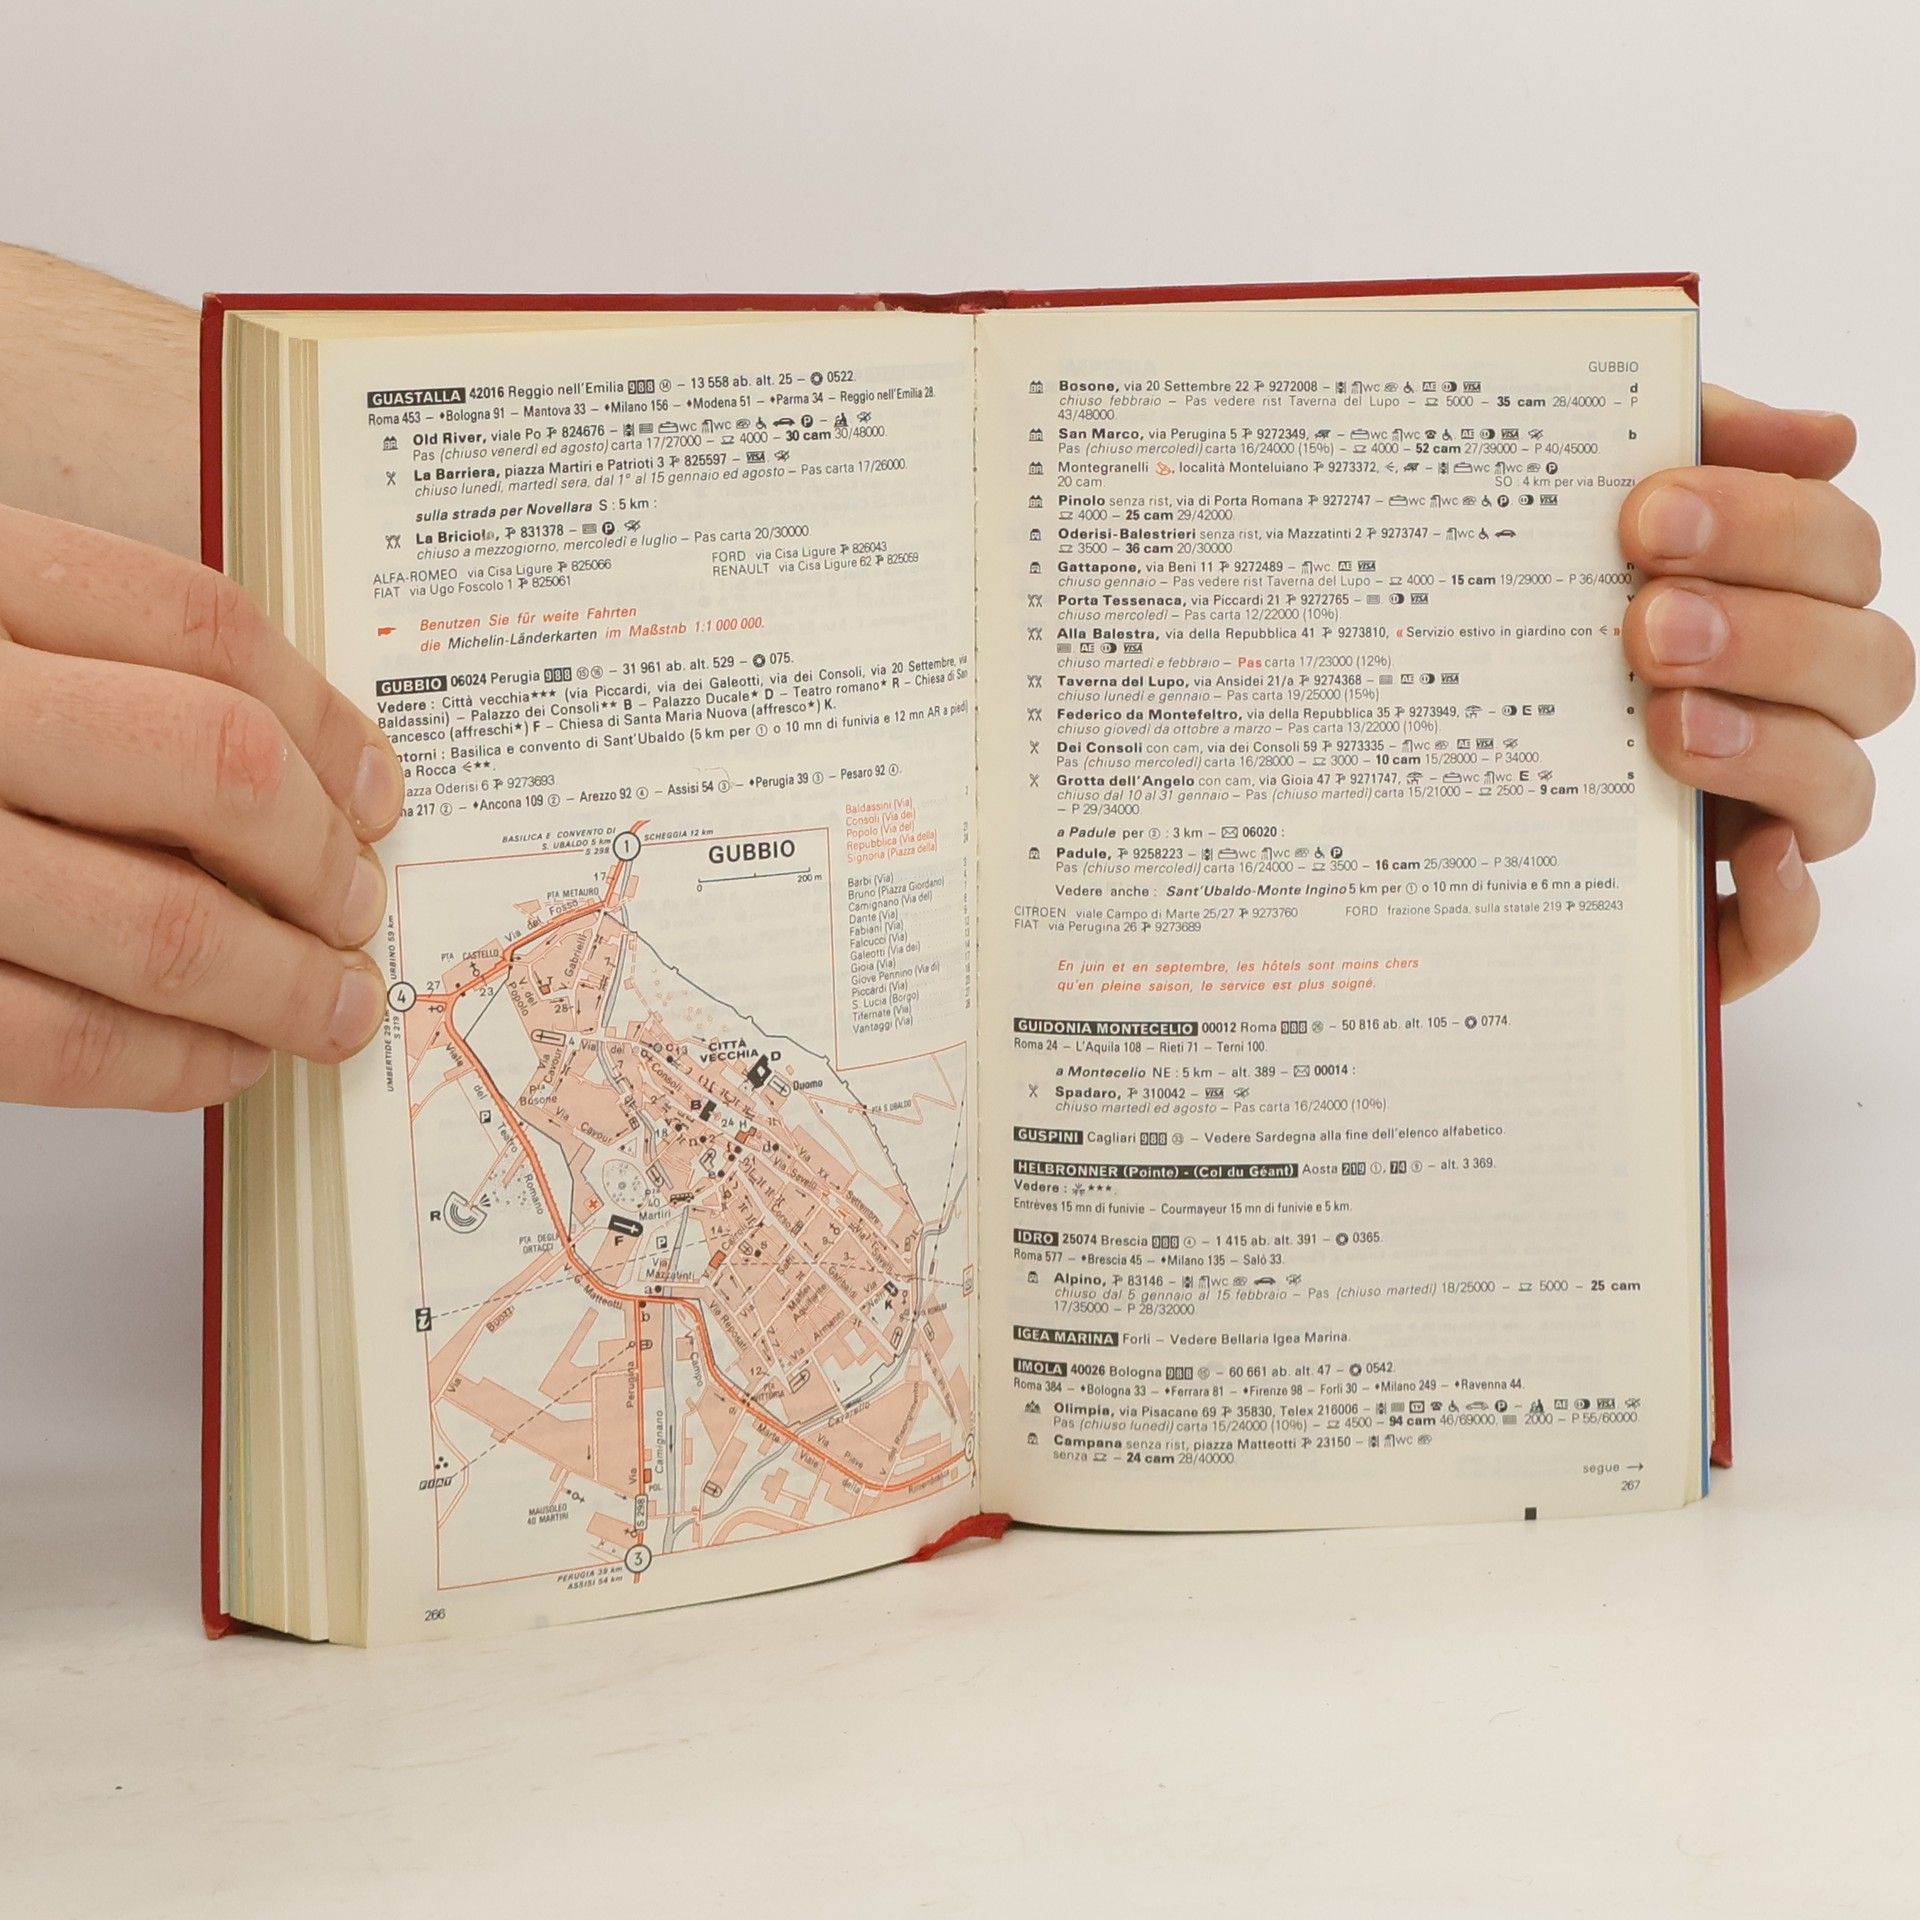 GUASTALLA 42016 Reggio nell'Emilia 988 ⑭ – 13 558 ab. alt. 25 – 0522.
Roma 453 – ♦Bologna 91 – Mantova 33 – ♦Milano 156 – ♦Modena 51 – ♦Parma 34 – Reggio nell'Emilia 28.
Old River, viale Po 824676 – wc wc P –
Pas (chiuso venerdì ed agosto) carta 17/27000 – 4000 – 30 cam 30/48000.
La Barriera, piazza Martiri e Patrioti 3 825597 – VISA
chiuso lunedì, martedì sera, dal 1° al 15 gennaio ed agosto – Pas carta 17/26000.
sulla strada per Novellara S : 5 km :
La Briciola, 831378 – P
chiuso a mezzogiorno, mercoledì e luglio – Pas carta 20/30000.
ALFA-ROMEO via Cisa Ligure 825066
FIAT via Ugo Foscolo 1 825061
FORD via Cisa Ligure 826043
RENAULT via Cisa Ligure 62 825059
Benutzen Sie für weite Fahrten
die Michelin-Länderkarten im Maßstab 1:1 000 000.
GUBBIO 06024 Perugia 988 ⑮ ⑯ – 31 961 ab. alt. 529 – 075.
Vedere : Città vecchia★★★ (via Piccardi, via dei Galeotti, via dei Consoli, via 20 Settembre, via
Baldassini) – Palazzo dei Consoli★★ B – Palazzo Ducale★ D – Teatro romano★ R – Chiesa di San
rancesco (affreschi★) F – Chiesa di Santa Maria Nuova (affresco★) K.
ntorni : Basilica e convento di Sant'Ubaldo (5 km per ① o 10 mn di funivia e 12 mn AR a piedi)
a Rocca ★★.
azza Oderisi 6 9273693.
na 217 ② – ♦Ancona 109 ② – Arezzo 92 ④ – Assisi 54 ③ – ♦Perugia 39 ③ – Pesaro 92 ④.
Baldassini (Via)
Consoli (Via dei)
Popolo (Via del)
Repubblica (Via della)
Signoria (Piazza della)
Barbi (Via)
Bruno (Piazza Giordano)
Camignano (Via del)
Dante (Via)
Fabiani (Via)
Falcucci (Via)
Galeotti (Via dei)
Gioia (Via)
Giove Pennino (Via di)
Piccardi (Via)
S. Lucia (Borgo)
Tifernate (Via)
Vantaggi (Via)
BASILICA E CONVENTO DI
S. UBALDO 5 km
S 298
1
SCHEGGIA 12 km
GUBBIO
0 200 m
17
PTA METAURO
Via del Fosso
PTA CASTELLO
URBINO 59 km
4
UMBERTIDE 29 km
S 219
27
23
V. del Popolo
Gabrielli
28
Via Cavour
4 Via dei Consoli
C 13
CITTÀ
VECCHIA
D
Duomo
PTA S. UBALDO
Bosone
Via Cavour
B
24 H
18
Viale del Teatro Romano
P
R
PTA DEGLI
ORTACCI
F
40
Martiri
Via XX Settembre
Via Savelli
14
Via
Mazzatinti
V. Cairoli
Corso Garibaldi
V. G. Matteotti
a
b
Via Reposati
Via Armanni
Via Nelli
K
Via Buozzi
Vle Campo di Marte
12
PTA
VITTORIA
Via Perugia
Camignano
Cavarello
Via Piave
Viale della Rimembranza
V. del Risorgimento
FIAT
MAUSOLEO
40 MARTIRI
POL.
S 298
3
PERUGIA 39 km
ASSISI 54 km
266
GUBBIO
Bosone, via 20 Settembre 22 9272008 – wc AE VISA d
chiuso febbraio – Pas vedere rist Taverna del Lupo – 5000 – 35 cam 28/40000 – P
43/48000.
San Marco, via Perugia 5 9272349, – wc wc AE VISA b
Pas (chiuso mercoledì) carta 16/24000 (15%) – 4000 – 52 cam 27/39000 – P 40/45000.
Montegranelli, località Monteluiano 9273372, – wc wc P
20 cam. SO : 4 km per via Buozzi
Pinolo senza rist, via di Porta Romana 9272747 – wc wc P VISA
4000 – 25 cam 29/42000.
Oderisi-Balestrieri senza rist, via Mazzatinti 2 9273747 – wc
3500 – 36 cam 20/30000.
Gattapone, via Beni 11 9272489 – wc. AE VISA n
chiuso gennaio – Pas vedere rist Taverna del Lupo – 4000 – 15 cam 19/29000 – P 36/40000.
Porta Tessenaca, via Piccardi 21 9272765 – VISA v
chiuso mercoledì – Pas carta 12/22000 (10%).
Alla Balestra, via della Repubblica 41 9273810, « Servizio estivo in giardino con »
AE VISA
chiuso martedì e febbraio – Pas carta 17/23000 (12%).
Taverna del Lupo, via Ansidei 21/a 9274368 – AE VISA f
chiuso lunedì e gennaio – Pas carta 19/25000 (15%)
Federico da Montefeltro, via della Repubblica 35 9273949, – E VISA e
chiuso giovedì da ottobre a marzo – Pas carta 13/22000 (10%).
Dei Consoli con cam, via dei Consoli 59 9273335 – wc AE VISA c
Pas (chiuso mercoledì) carta 16/28000 – 3000 – 10 cam 15/28000 – P 34000.
Grotta dell'Angelo con cam, via Gioia 47 9271747, – wc wc E s
chiuso dal 10 al 31 gennaio – Pas (chiuso martedì) carta 15/21000 – 2500 – 9 cam 18/30000
– P 29/34000.
a Padule per ② : 3 km – 06020 :
Padule, 9258223 – wc wc P
Pas (chiuso mercoledì) carta 16/24000 – 3500 – 16 cam 25/39000 – P 38/41000.
Vedere anche : Sant'Ubaldo-Monte Ingino 5 km per ① o 10 mn di funivia e 6 mn a piedi.
CITROEN viale Campo di Marte 25/27 9273760 FORD frazione Spada, sulla statale 219 9258243
FIAT via Perugina 26 9273689
En juin et en septembre, les hôtels sont moins chers
qu'en pleine saison, le service est plus soigné.
GUIDONIA MONTECELIO 00012 Roma 988 ㉖ – 50 816 ab. alt. 105 – 0774.
Roma 24 – L'Aquila 108 – Rieti 71 – Terni 100.
a Montecelio NE : 5 km – alt. 389 – 00014 :
Spadaro, 310042 – VISA
chiuso martedì ed agosto – Pas carta 16/24000 (10%).
GUSPINI Cagliari 988 ㉝ – Vedere Sardegna alla fine dell'elenco alfabetico.
HELBRONNER (Pointe) - (Col du Géant) Aosta 219 ①, 74 ⑨ – alt. 3 369.
Vedere : ★★★.
Entrèves 15 mn di funivie – Courmayeur 15 mn di funivie e 5 km.
IDRO 25074 Brescia 988 ④ – 1 415 ab. alt. 391 – 0365.
Roma 577 – ♦Brescia 45 – ♦Milano 135 – Salò 33.
Alpino, 83146 – wc
chiuso dal 5 gennaio al 15 febbraio – Pas (chiuso martedì) 18/25000 – 5000 – 25 cam
17/35000 – P 28/32000.
IGEA MARINA Forlì – Vedere Bellaria Igea Marina.
IMOLA 40026 Bologna 988 ⑮ – 60 661 ab. alt. 47 – 0542.
Roma 384 – ♦Bologna 33 – ♦Ferrara 81 – ♦Firenze 98 – Forlì 30 – ♦Milano 249 – ♦Ravenna 44.
Olimpia, via Pisacane 69 35830, Telex 216006 – TV P – AE VISA
Pas (chiuso lunedì) carta 15/24000 (10%) – 4500 – 94 cam 46/69000, 2000 – P 55/60000.
Campana senza rist, piazza Matteotti 23150 – wc
senza – 24 cam 28/40000.
segue →
267